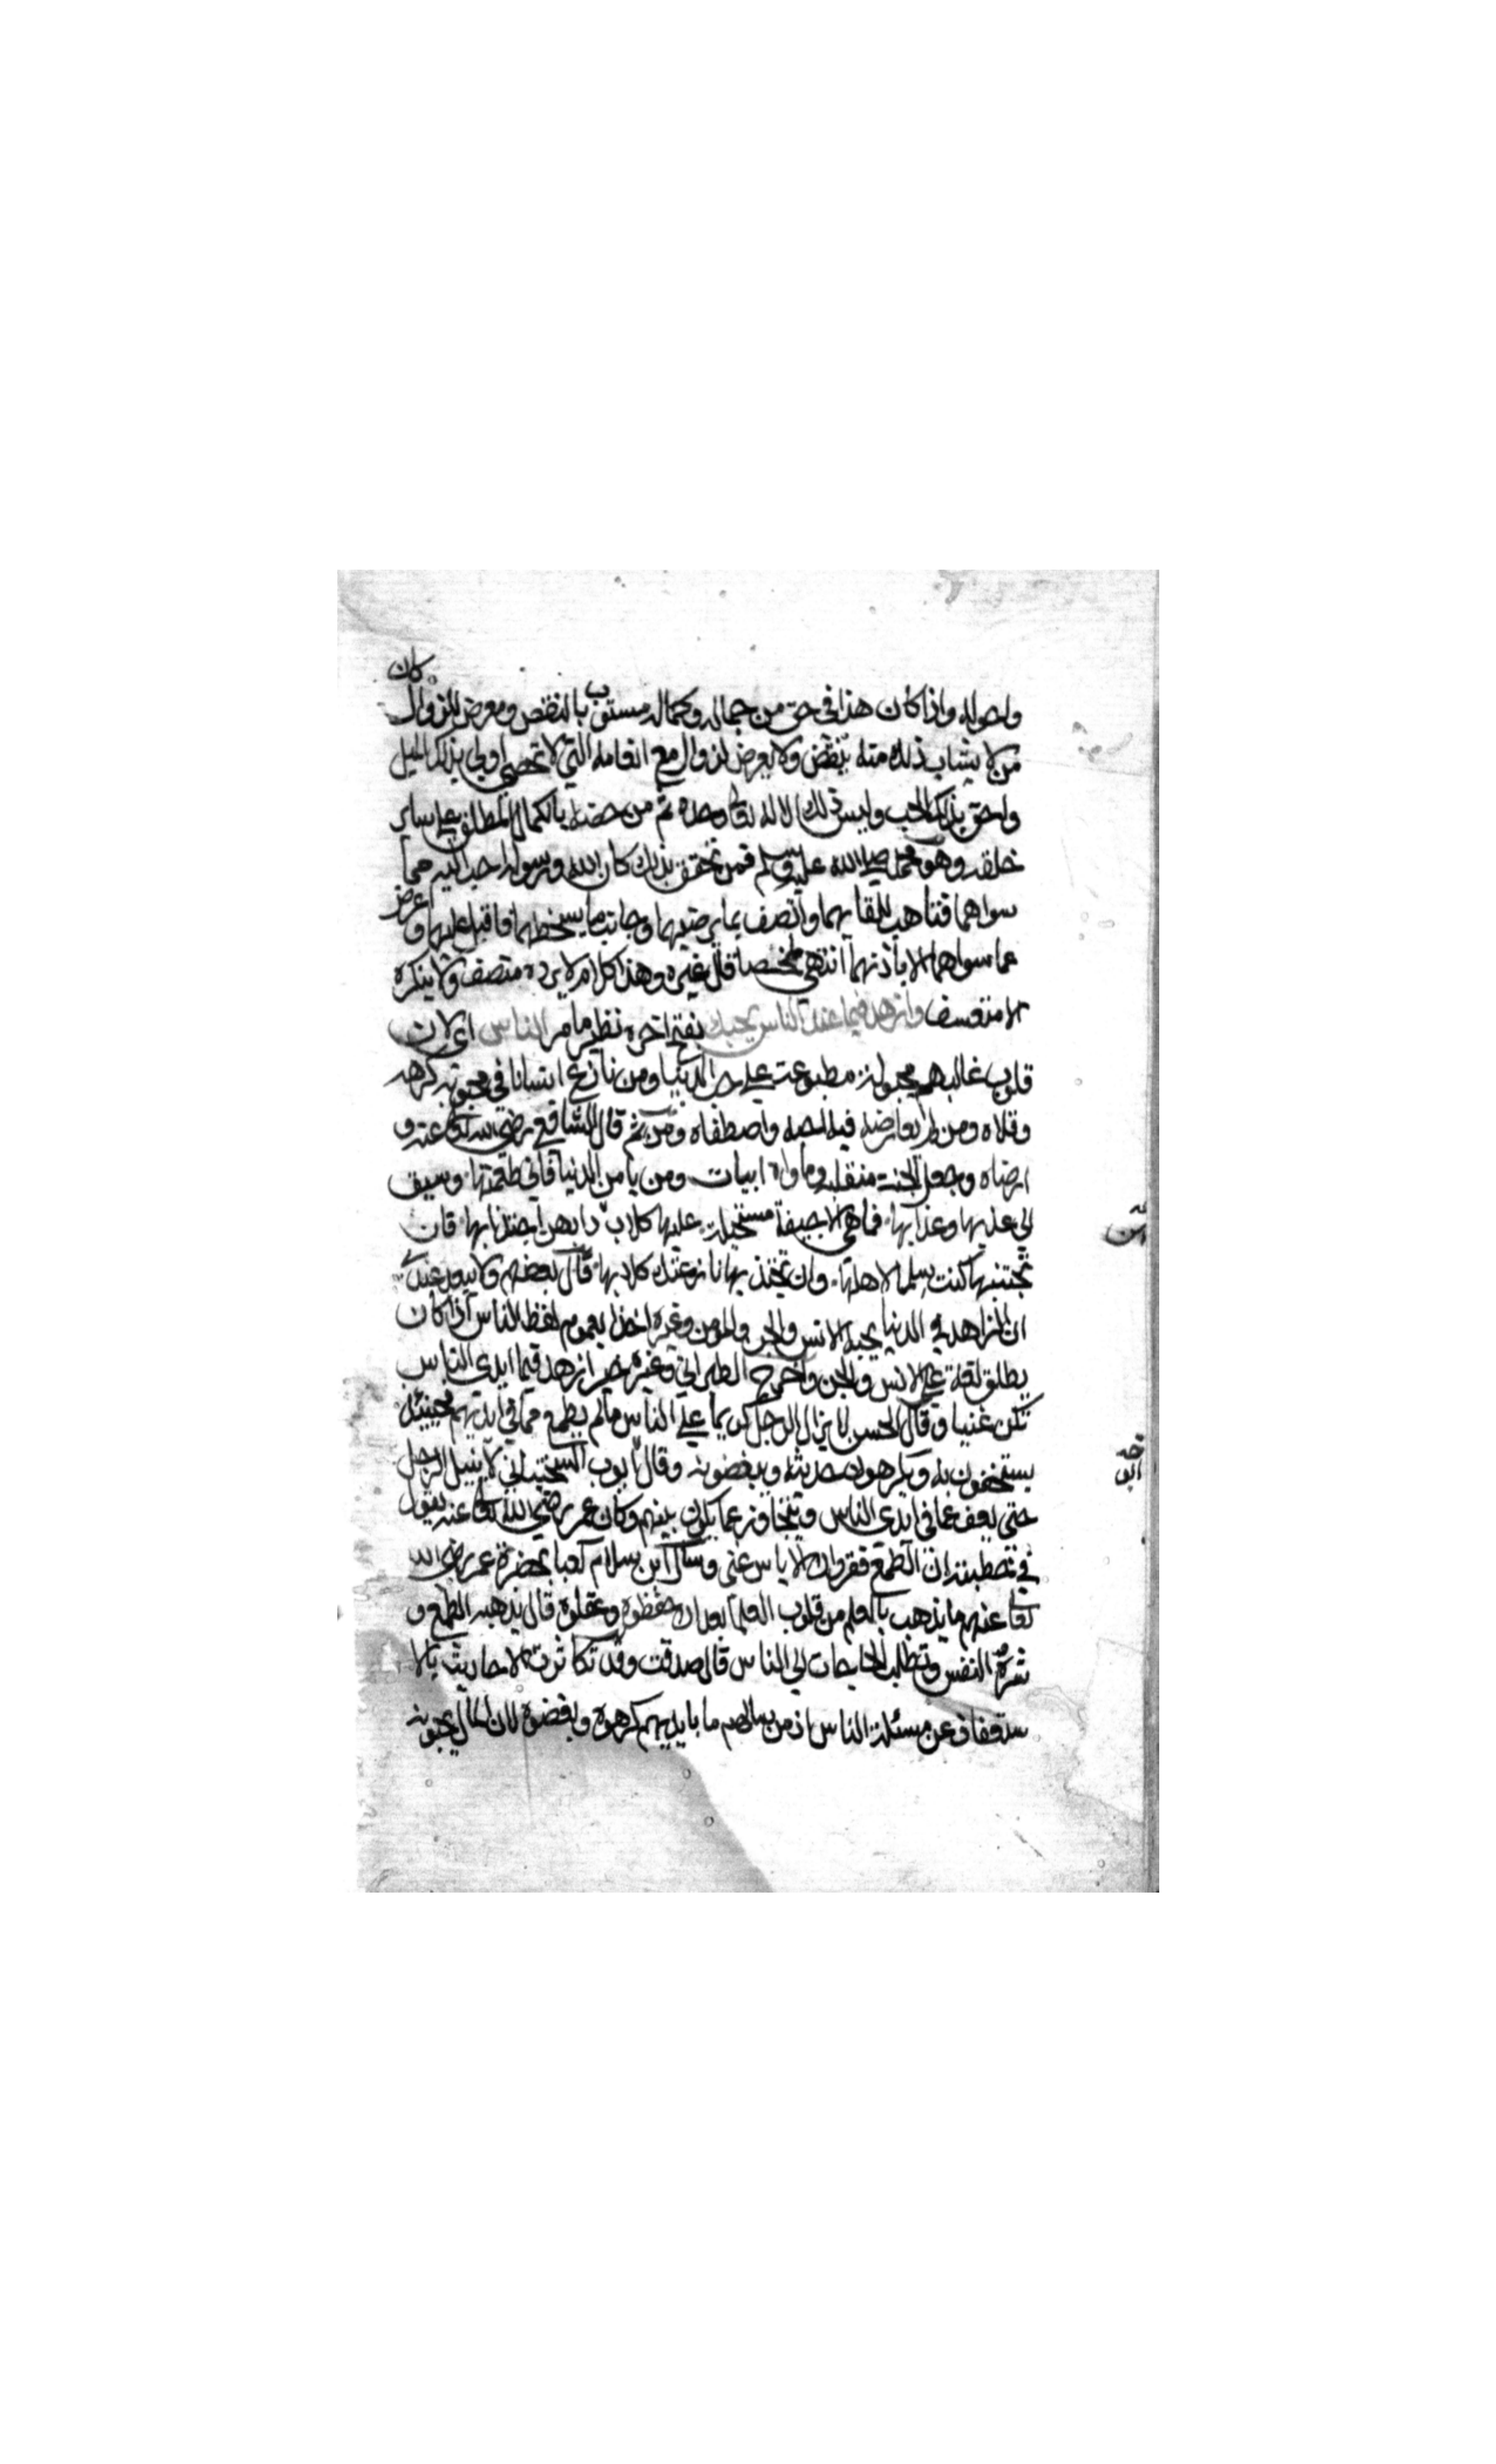 كان
واحواله واذا كان هذا في حق من جماله وكماله مستوب بالنقص ومعرض للزوال
من لا يشاب ذلك منه بنقص ولا يعرض لزوال مع انعامه التي لا تحصى اولى بذلك الميل
واحق بذلك الحب وليس ذلك الا لله تعالى وحده ثم من خصه بالكمال المطلق على ساير
خلقه وهو محمد صلى الله عليه وسلم فمن تحقق بذلك كان الله ورسوله احب اليه مما
سواهما فتاهب للقائهما واتصف بما يرضيهما وجانب ما يسخطهما فاقبل عليهما واعرض
عما سواهما الا باذنهما انتهى ملخصا قال غيره وهذا كلام لا يرده متصف ولا ينكره
الا متعسف وازهد فيما عند الناس يحبك بفتح اخره نظير ما مر الناس اي لان
قلوب غالبهم مجبولة مطبوعة على حب الدنيا ومن نازع انسانا في محبوبه كرهه
وقلاه ومن لم يعارضه فيه احبه واصطفاه ومن ثم قال الشافعي رضي الله تعالى عنه و
ارضاه وجعل الجنة متقلبه وماواه ابيات ومن يامن الدنيا فاني طعمتها وسيق
الي عذبها وعذابها فما هي الا جيفة مستحيلة عليها كلاب دابهن اجتذابها فان
تجتنبها كنت سلما لاهلها وان تجتذبها نازعتك كلابها قال بعضهم ولا يبعد عندي
ان الزاهد في الدنيا يحبه الانس والجن والمؤمن وغيره اخذا بعموم لفظ الناس اذا كان
يطلق لغة على الانس والجن واخرج الطبراني وغيره خبر ازهد فيما ايدى الناس
تكن غنيا وقال الحسن لا يزال الرجل كريما على الناس ما لم يطمع مما في ايديهم فحينئذ
يستخفون به ويكرهون حديثه ويبغضونه وقال ايوب السختياني لا ينبل الرجل
حتى يعف عما في ايدى الناس ويتجاوز عما يكون بينهم وكان عمر رضي الله تعالى عنه يقول
في خطبته ان الطمع فقر وان الاياس غنى وسال ابن سلام كعبا بحضرة عمر رضي الله
تعالى عنهم ما يذهب بالعلم من قلوب العلما بعد ان حفظوه وعقلوه قال يذهبه الطمع و
شره النفس وتطلب الحاجات الى الناس قال صدقت وقد تكاثرت الاحاديث بالا
ستعفاف عن مسئلة الناس اذ من سالهم ما بايديهم كرهوه وبغضوه لان المال محبوب